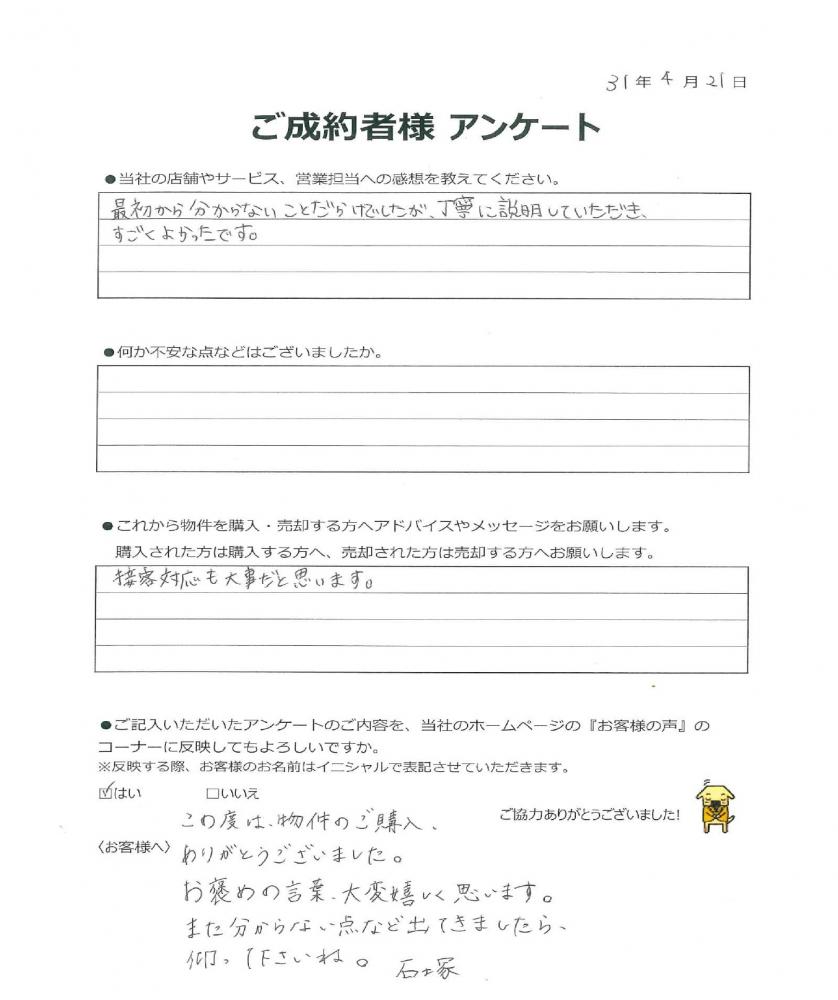 31年4月21日
ご成約者様 アンケート
●当社の店舗やサービス、営業担当への感想を教えてください。
最初から分からないことだらけでしたが、丁寧に説明していただき、
すごくよかったです。
●何か不安な点などはございましたか。
●これから物件を購入・売却する方へアドバイスやメッセージをお願いします。
購入された方は購入する方へ、売却された方は売却する方へお願いします。
接客対応も大事だと思います。
●ご記入いただいたアンケートのご内容を、当社のホームページの『お客様の声』の
コーナーに反映してもよろしいですか。
※反映する際、お客様のお名前はイニシャルで表記させていただきます。
☑はい □いいえ
ご協力ありがとうございました!
〈お客様へ〉
この度は、物件のご購入、
ありがとうございました。
お褒めの言葉、大変嬉しく思います。
また分からない点など出てきましたら、
仰って下さいね。 石塚